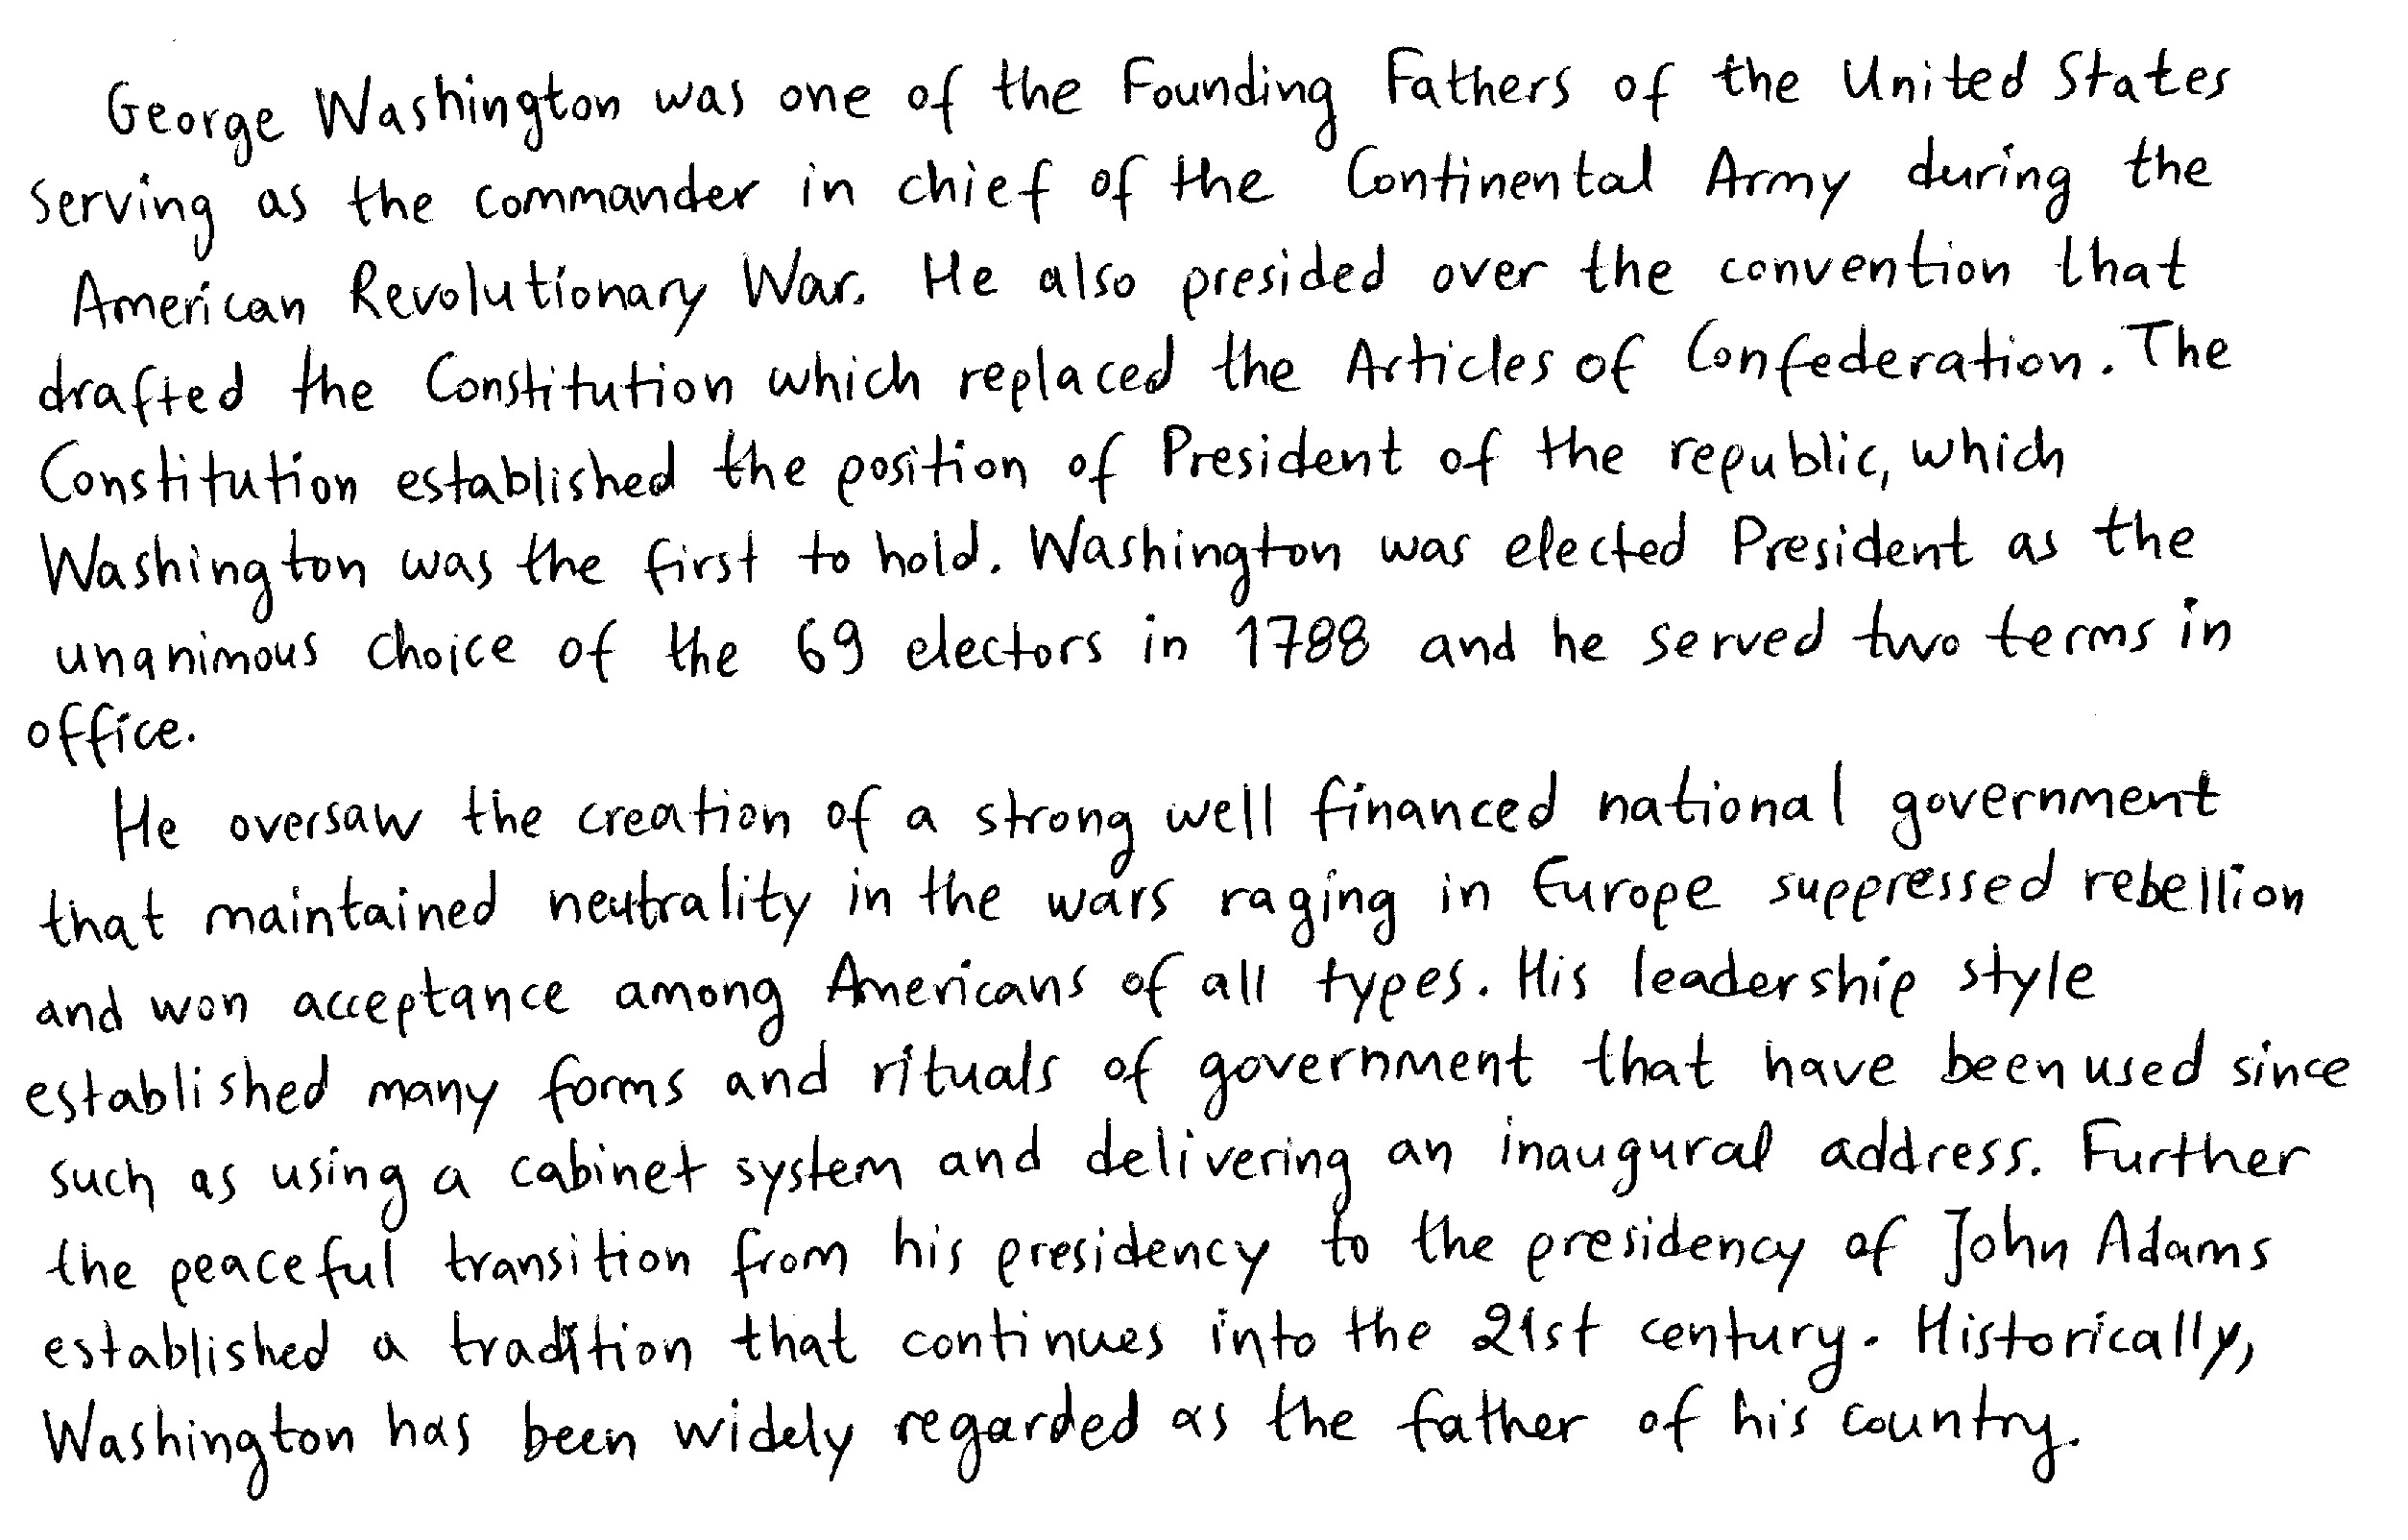 George Washington was one of the Founding Fathers of the United States
serving as the commander in chief of the Continental Army during the
American Revolutionary War. He also presided over the convention that
drafted the Constitution which replaced the Articles of Confederation. The
Constitution established the position of President of the republic, which
Washington was the first to hold. Washington was elected President as the
unanimous choice of the 69 electors in 1788 and he served two terms in
office.
He oversaw the creation of a strong well financed national government
that maintained neutrality in the wars raging in Europe suppressed rebellion
and won acceptance among Americans of all types. His leadership style
established many forms and rituals of government that have been used since
such as using a cabinet system and delivering an inaugural address. Further
the peaceful transition from his presidency to the presidency of John Adams
established a tradition that continues into the 21st century. Historically,
Washington has been widely regarded as the father of his country.